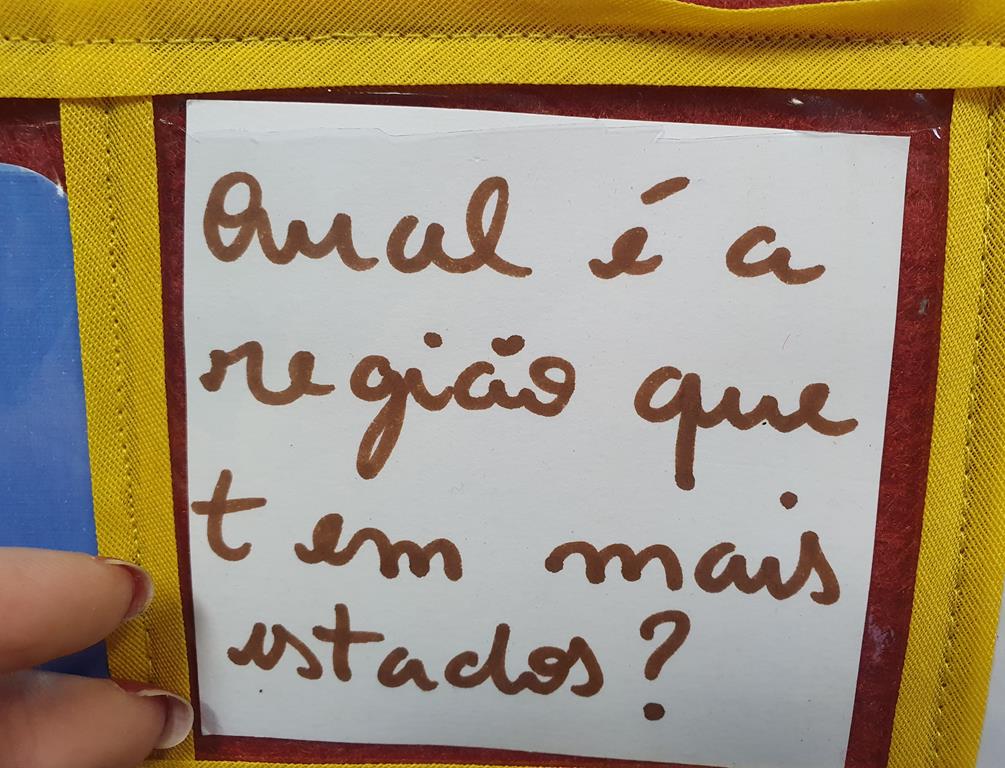 Qual é a
região que
tem mais
estados?